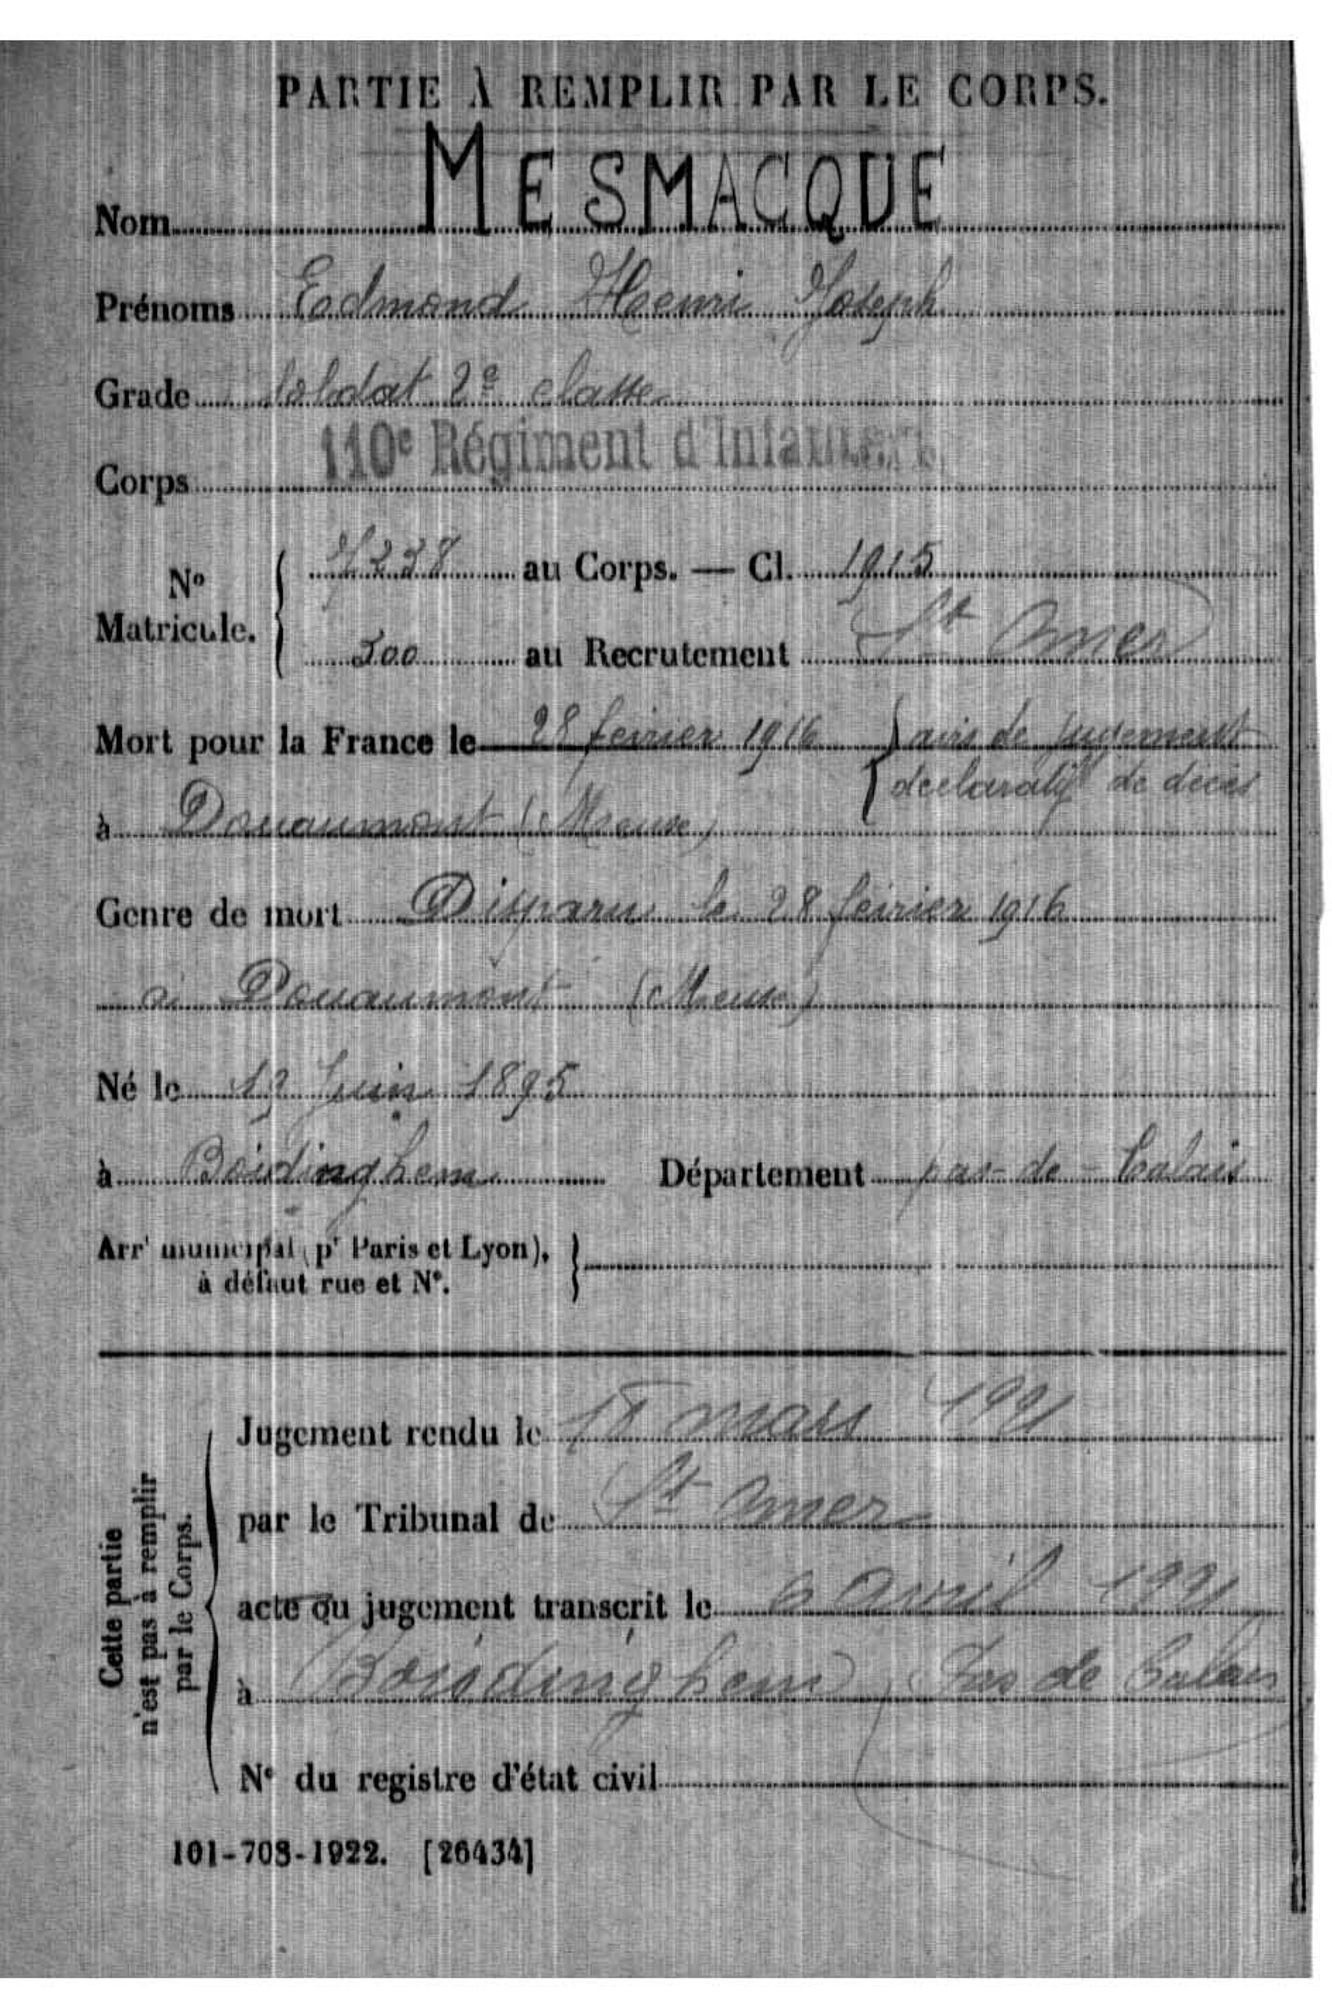 PARTIE À REMPLIR PAR LE CORPS.
Nom MESMACQUE
Prénoms Edmond Henri Joseph
Grade soldat 2e classe
Corps 110e Régiment d'Infanterie
No Matricule. 7238 au Corps. — Cl. 1915
500 au Recrutement St Omer
Mort pour la France le 28 février 1916 avis de jugement
déclaratif de décès
à Douaumont (Meuse)
Genre de mort Disparu le 28 février 1916
à Douaumont (Meuse)
Né le 12 Juin 1895
à Boisdinghem Département pas-de-Calais
Arrt municipal (pr Paris et Lyon),
à défaut rue et N°.
Cette partie
n'est pas à remplir
par le Corps.
Jugement rendu le 18 mars 1921
par le Tribunal de St Omer
acte ou jugement transcrit le 6 avril 1921
à Boisdinghem Pas de Calais
N° du registre d'état civil
101-708-1922. [26434]